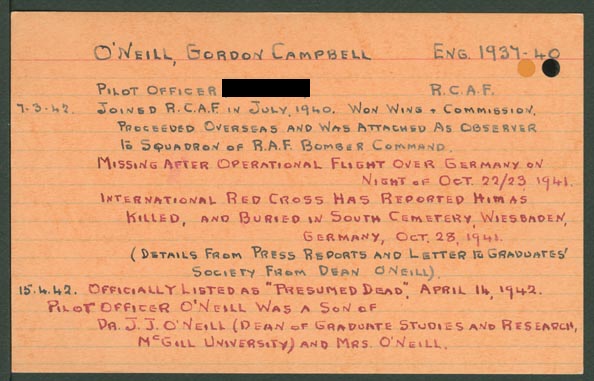 O'NEILL, GORDON CAMPBELL ENG. 1937-40
PILOT OFFICER R.C.A.F.
7-3-42. JOINED R.C.A.F. IN JULY, 1940. WON WINGS + COMMISSION,
PROCEEDED OVERSEAS AND WAS ATTACHED AS OBSERVER
TO SQUADRON OF R.A.F. BOMBER COMMAND.
MISSING AFTER OPERATIONAL FLIGHT OVER GERMANY ON
NIGHT OF OCT. 22/23, 1941.
INTERNATIONAL RED CROSS HAS REPORTED HIM AS
KILLED, AND BURIED IN SOUTH CEMETERY, WIESBADEN,
GERMANY, OCT. 28, 1941.
(DETAILS FROM PRESS REPORTS AND LETTER TO GRADUATES'
SOCIETY FROM DEAN O'NEILL).
15.4.42. OFFICIALLY LISTED AS "PRESUMED DEAD", APRIL 14, 1942.
PILOT OFFICER O'NEILL WAS A SON OF
DR. J. J. O'NEILL (DEAN OF GRADUATE STUDIES AND RESEARCH,
MCGILL UNIVERSITY) AND MRS. O'NEILL.